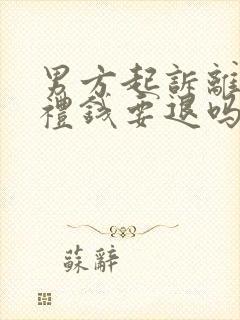 男方起訴離
禮錢要退吗
蘇辭